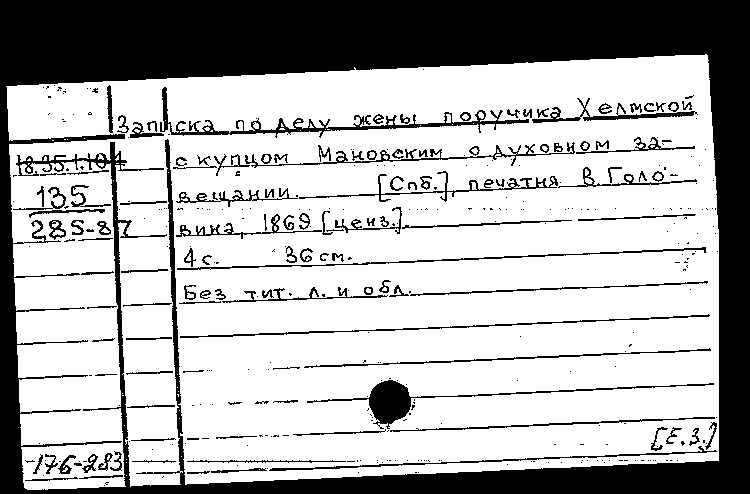 Записка по делу жены поручика Хелмской
18.35.1.104
с купцом Мановским о духовном за-
135
вещании. [Спб.], печатня В. Голо-
285-87
вина, 1869 [ценз.].
4 с. 36 см.
Без тит. л. и обл.
[Е.З.]
176-283